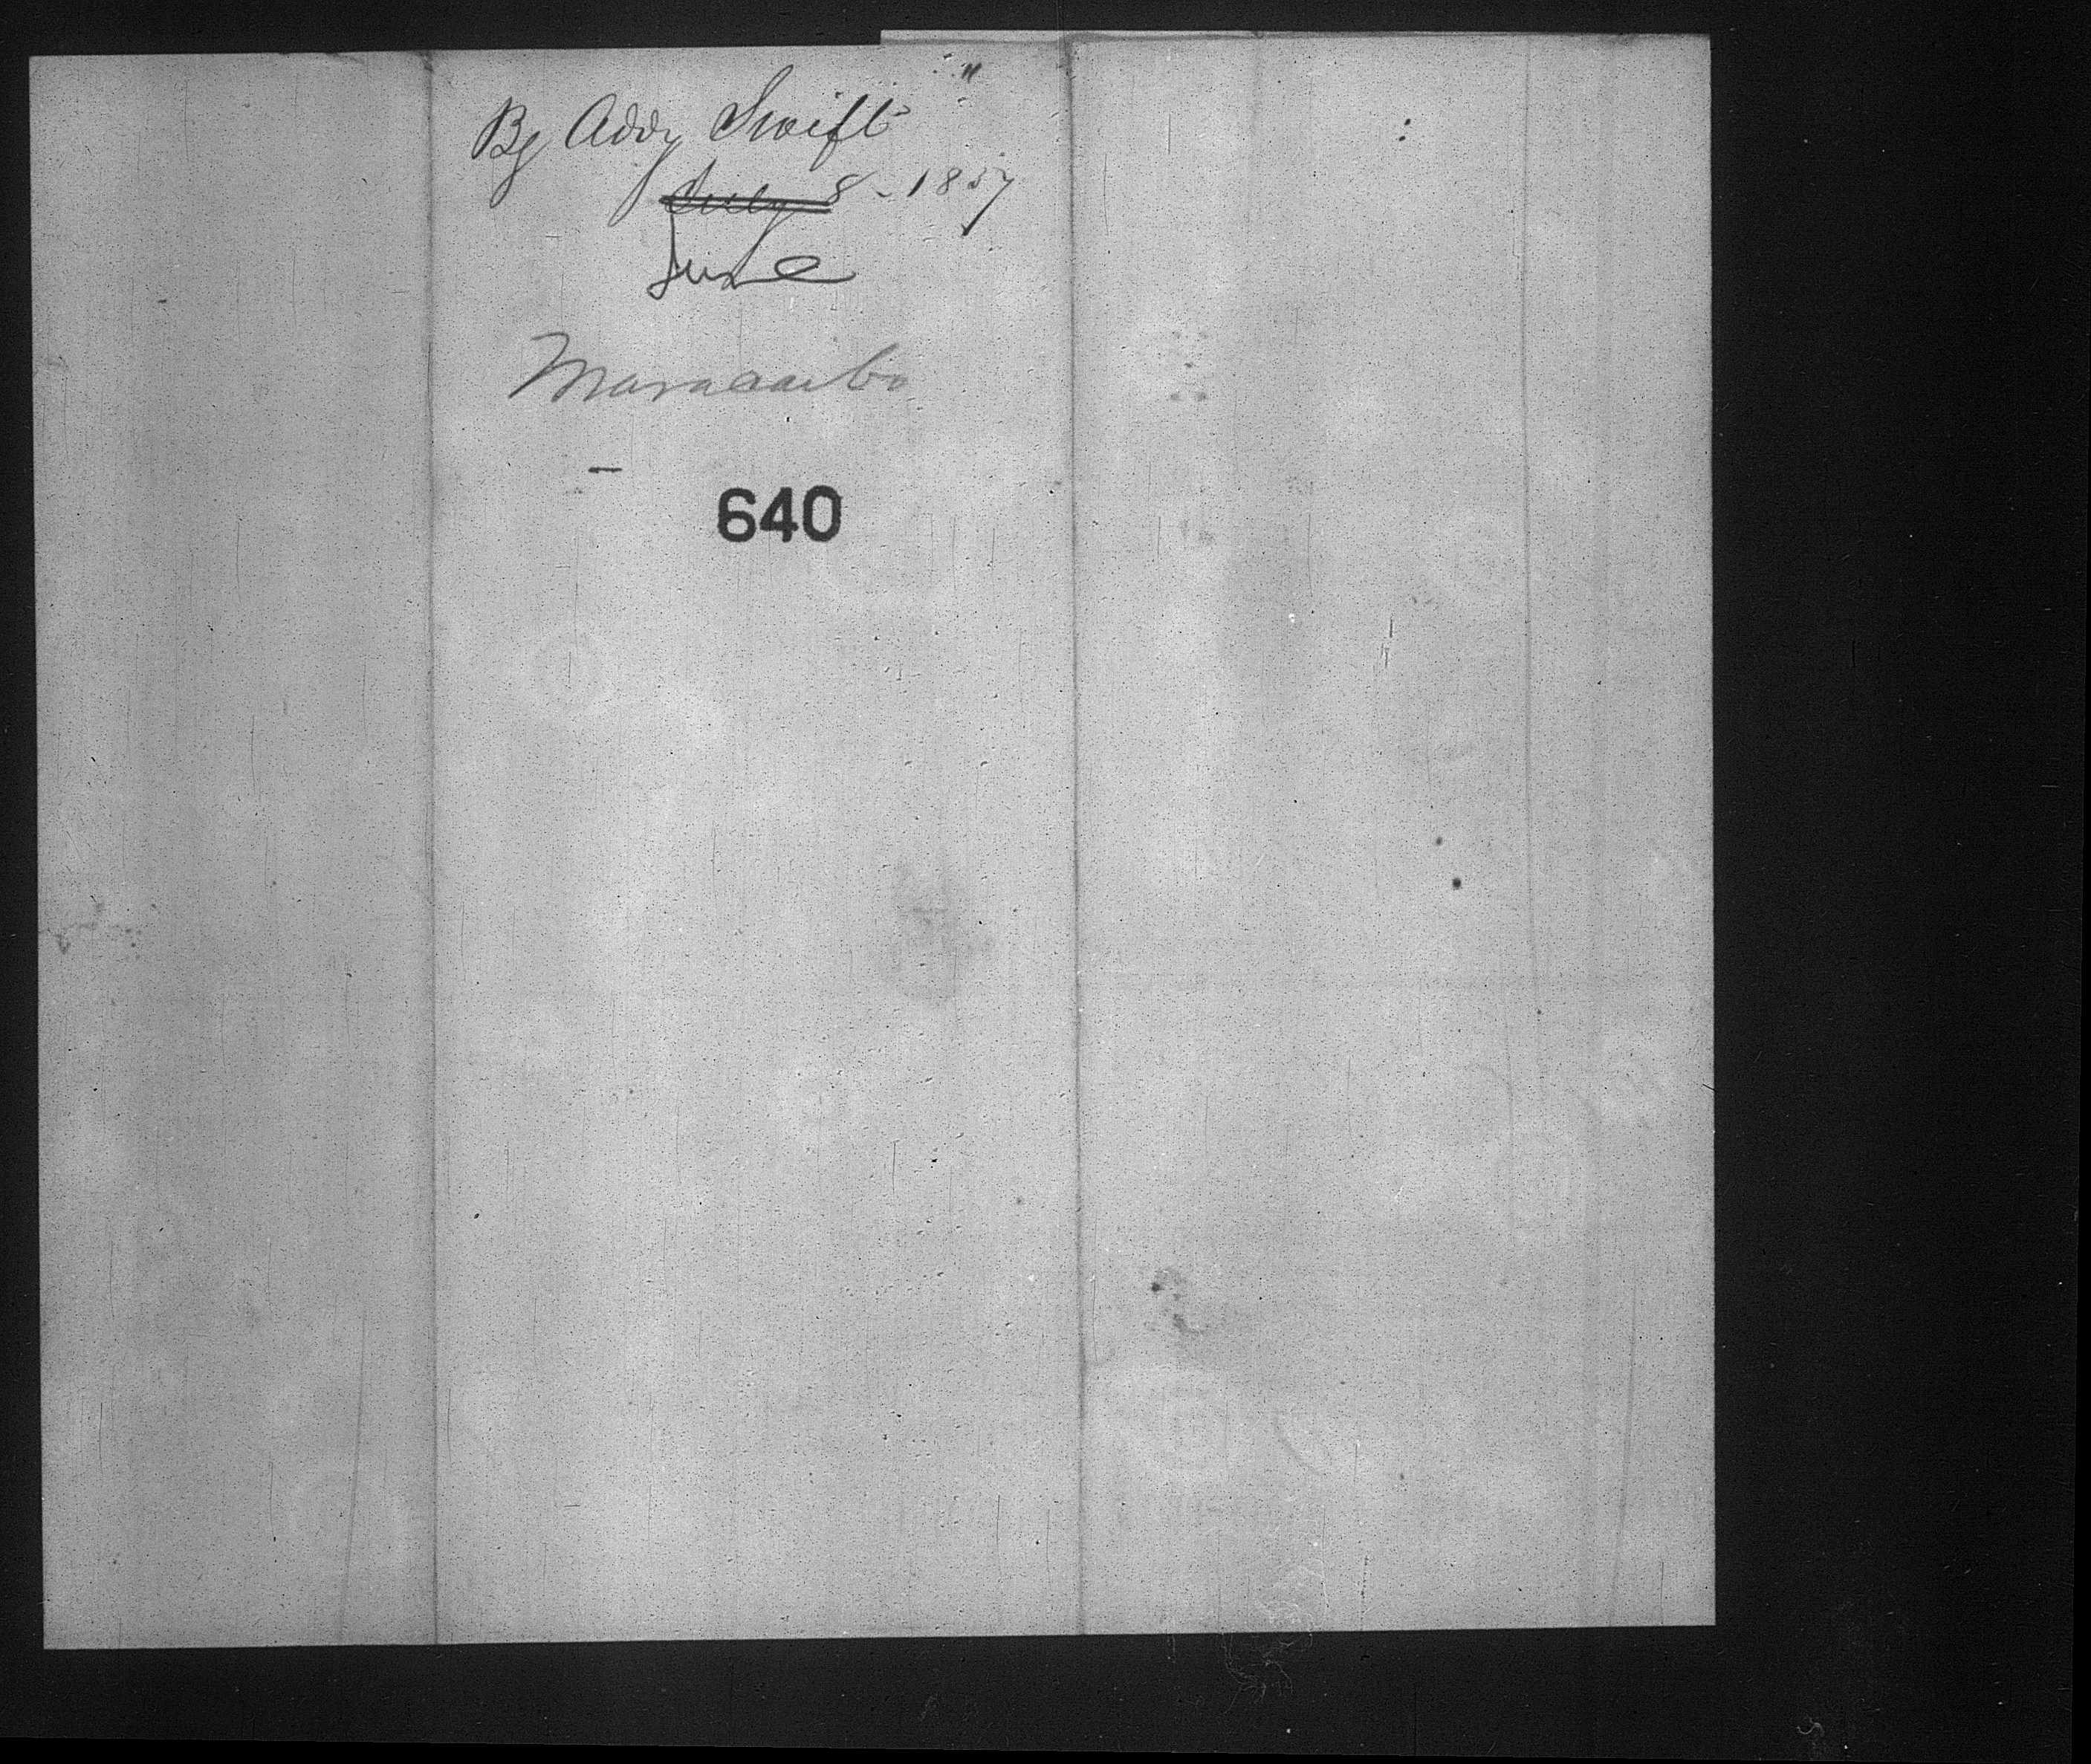 Bg Addy Swift
July 8 - 1857
June
Maracaibo
640